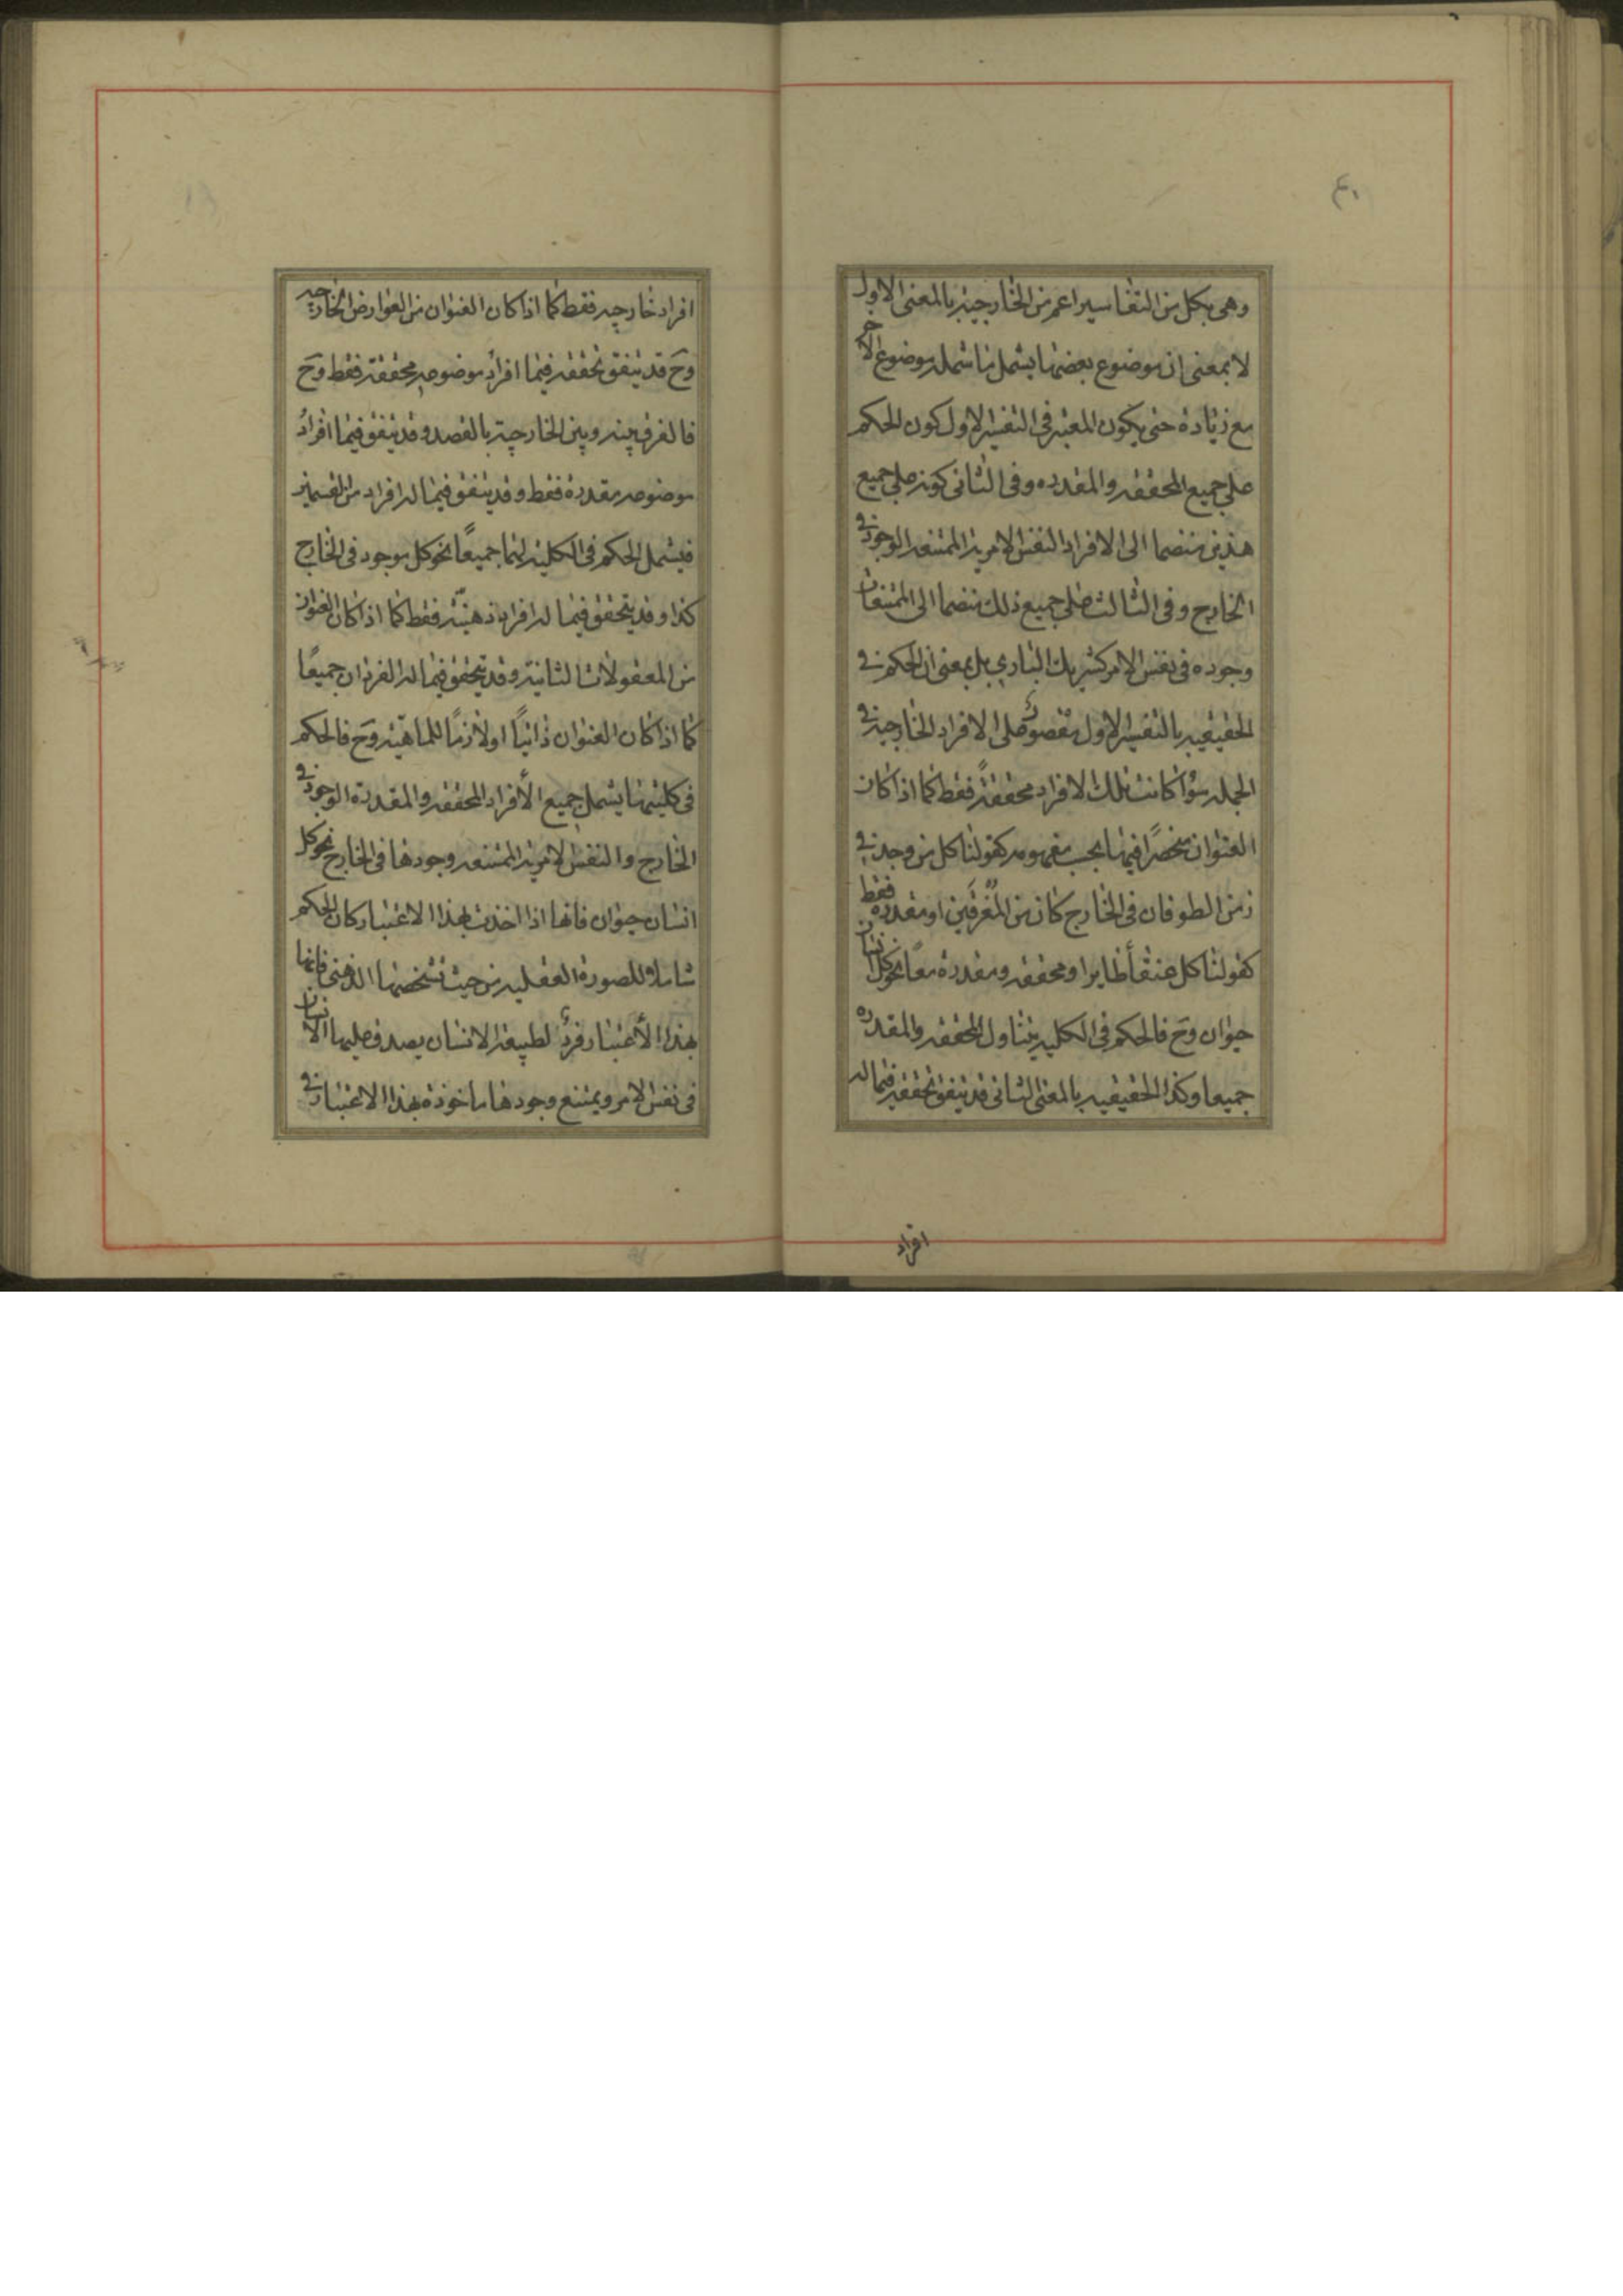 ٤٠
وهى بكل من التفاسير اعم من الخارجية بالمعنى الاول
لا بمعنى ان موضوع بعضها يشمل ما شمله موضوع الاخر
مع زيادة حتى يكون المعتبر فى التفسير الاول كون الحكم
على جميع المحققه والمقدره وفى الثانى كونه على جميع
هذين منضما الى الافراد النفس الامرية الممتنعه الوجود فى
الخارج وفى الثالث على جميع ذلك منضما الى الممتنعات
وجوده فى نفس الامر كشريك البارى بل بمعنى ان الحكم فى
الحقيقيه بالتفسير الاول مقصور على الافراد الخارجية فى
الجمله سواء كانت تلك الافراد محققةً فقط كما اذا كان
العنوان منحصرًا فيها بحسب مفهومه كقولنا كل من وجد فى
زمن الطوفان فى الخارج كان من المُغرَقين او مقدره فقط
كقولنا كل عنقأ طاير او محققه ومقدرة معًا نحو كل انسان
حيوان وح فالحكم فى الكليه يتناول المحققه والمقدره
جميعا وكذا الحقيقيه بالمعنى الثانى قد يتفق تحققه فيما له
افراد
افراد خارجيه فقط كما اذا كان العنوان من العوارض الخارجيه
وح قد يتفق تحققه فيما افراد موضوعه محققة فقط وح
فالفرق بينه وبين الخارجية بالقصد وقد يتفق فيما افراد
موضوعه مقدرة فقط وقد يتفق فيما له افراد من القسمين
فيشمل الحكم فى الكليه لهما جميعًا نحو كل موجود فى الخارج
كذا وقد يتحقق فيما له افراد ذهنيّة فقط كما اذا كان العنوان
من المعقولات الثانية وقد يتحقق فيما له الفردان جميعًا
كما اذا كان العنوان ذاتيًا او لازمًا للماهيّة وح فالحكم
فى كليتها يشمل جميع الأفراد المحققه والمقدرة الوجود فى
الخارج والنفس الامرية الممتنعه وجودها فى الخارج نحو كل
انسان حيوان فانها اذا اخذت بهذا الاعتبار كان الحكم
شاملا للصورة العقليه من حيث تشخصها الذهنى فانها
بهذا الأعتبار فردٌ لطبيعة الانسان يصدق عليها الانسان
فى نفس الامر ويمتنع وجودها ماخوذة بهذا الاعتبار فى